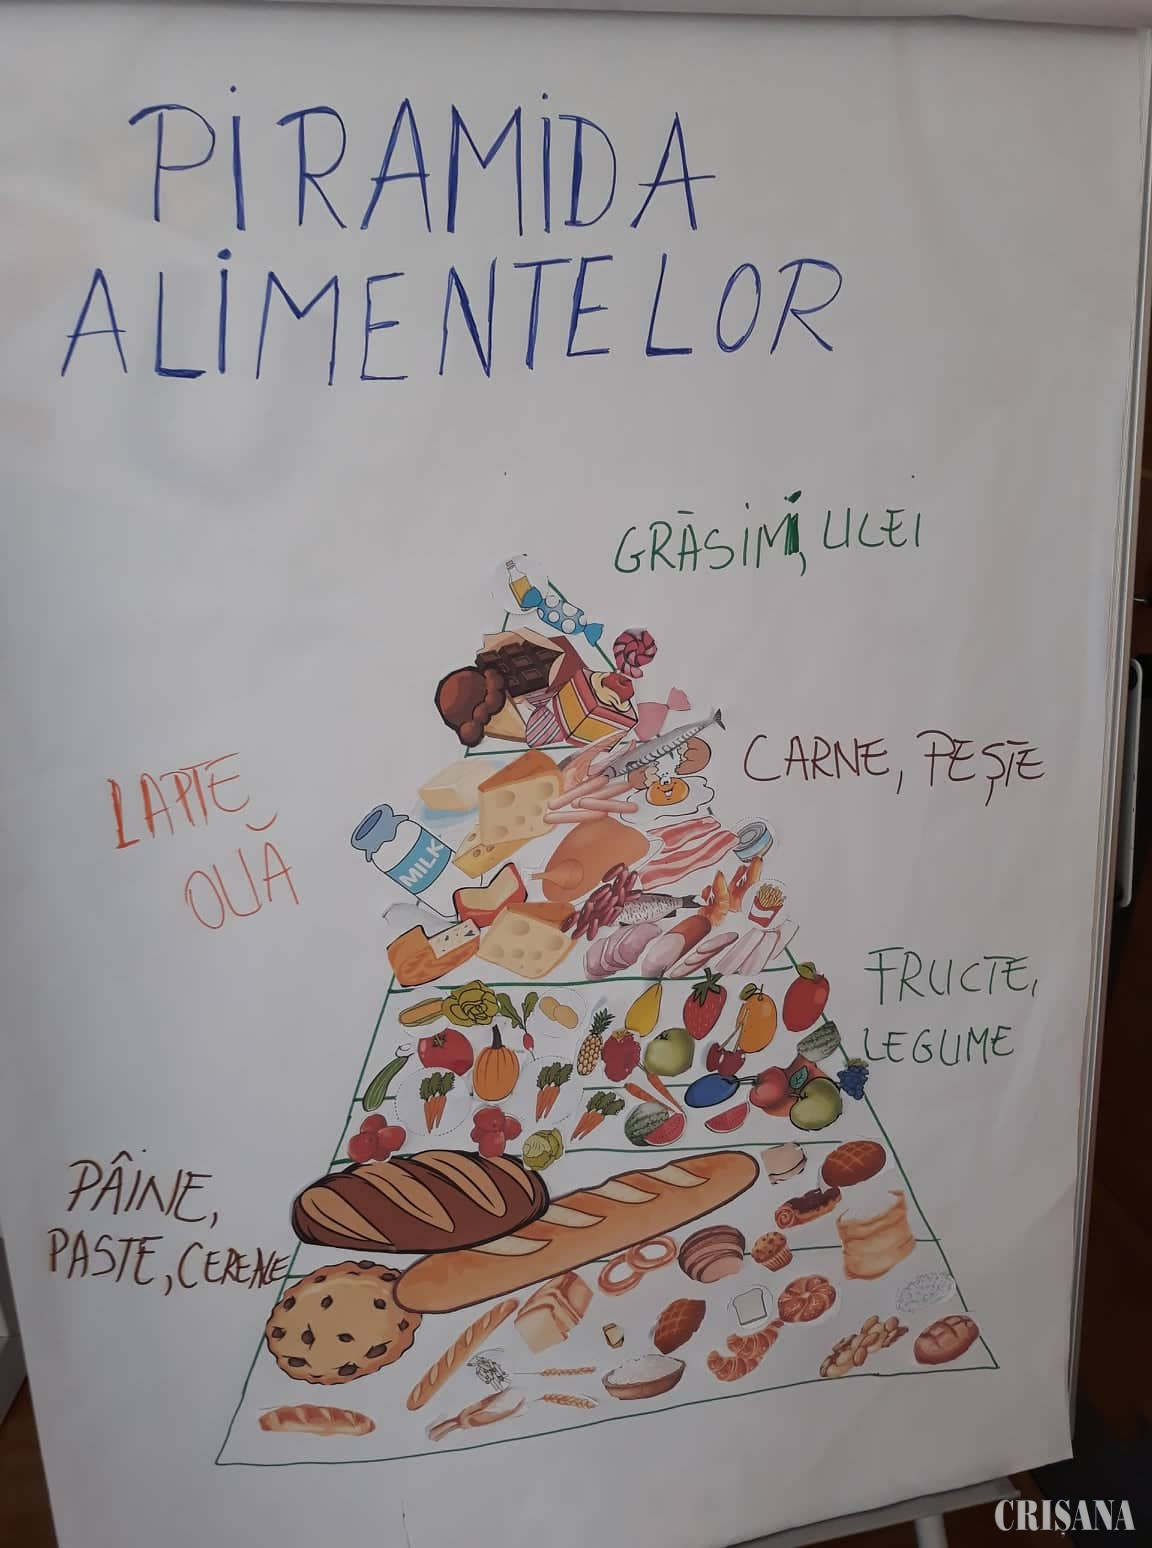 PIRAMIDA
ALIMENTELOR
GRĂSIMI, ULEI
CARNE, PEȘTE
LAPTE
OUĂ
MILK
FRUCTE,
LEGUME
PÂINE,
PASTE, CEREALE
CRIȘANA